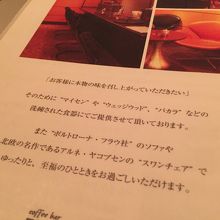 「お客様に本物の味を召し上がっていただきたい」
そのために “マイセン” や “ウェッジウッド”、“バカラ” などの
洗練された食器にてご提供させて頂いております。
また “ポルトローナ・フラウ社” のソファや
北欧の名作であるアルネ・ヤコブセンの “スワンチェア” で
ゆったりと、至福のひとときをお過ごしいただけます。
coffee bar